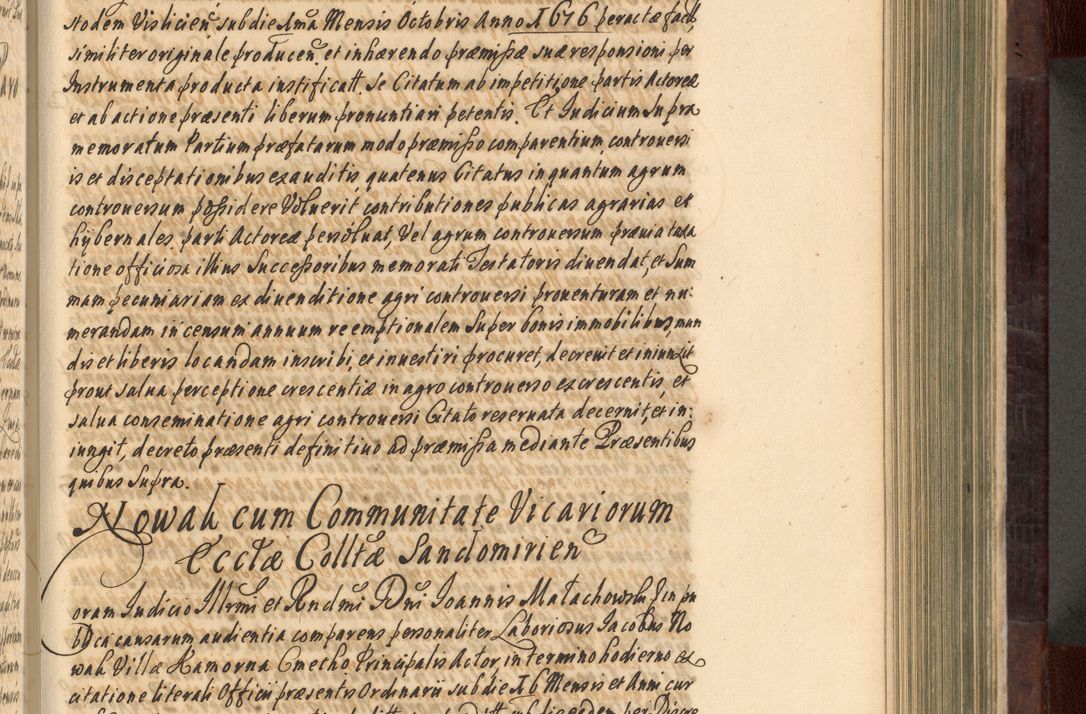 Nodem Vislicieñ sub die Ima Mensis Octobris Anno 1676 peractæ fact,
similiter originale producen. et inhærendo præmissæ suæ responsioni per
Instrumenta producta iustificatt. se Citatum ab impetitione partis Actoreæ
et ab actione præsenti liberum pronuntiari petentis. Et Iudicium supra
memoratum Partium præfatarum modo præmisso comparentium controuersi
is et disceptationibus exauditis quatenus Citatus in quantum agrum
controuersum possidere Voluerit contributiones publicas agrarias et
hybernales parti Actoreæ persoluat, Vel agrum controuersum præuia taxa
tione officiosa illius Successoribus memorati Testatoris diuendat, et Sum
mam pecuniariam ex diuenditione agri controuersi prouenturam et nu:
merandam in censum annuum reemptionalem super bonis immobilibus, mun
dis et liberis locandam inscribi, et inuestiri procuret, decreuit et iniunxit
prout salua perceptione crescentiæ in agro controuerso excrescentis, et
salua conseminatione agri controuersi Citato reseruata decernit, et in:
iungit, decreto præsenti definitiuo ad præmissa mediante Præsentibus
quibus supra.
Nowak cum Communitate Vicariorum
Ecctæ Colltæ Sandomirien
oram Iudicio Illrmi et Rndmi Dni Ioannis Małachowski Ein pu
blica causarum audientia comparens personaliter Laboriosus Iacobus No
wak Villæ Kamorna Cmetho Principalis Actor, in termino hodierno ex
citatione literali Officii præsentis Ordinarii sub die 16 Mensis et Anni cur